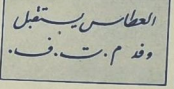 العطاس يستقبل
وفد م.ت.ف.